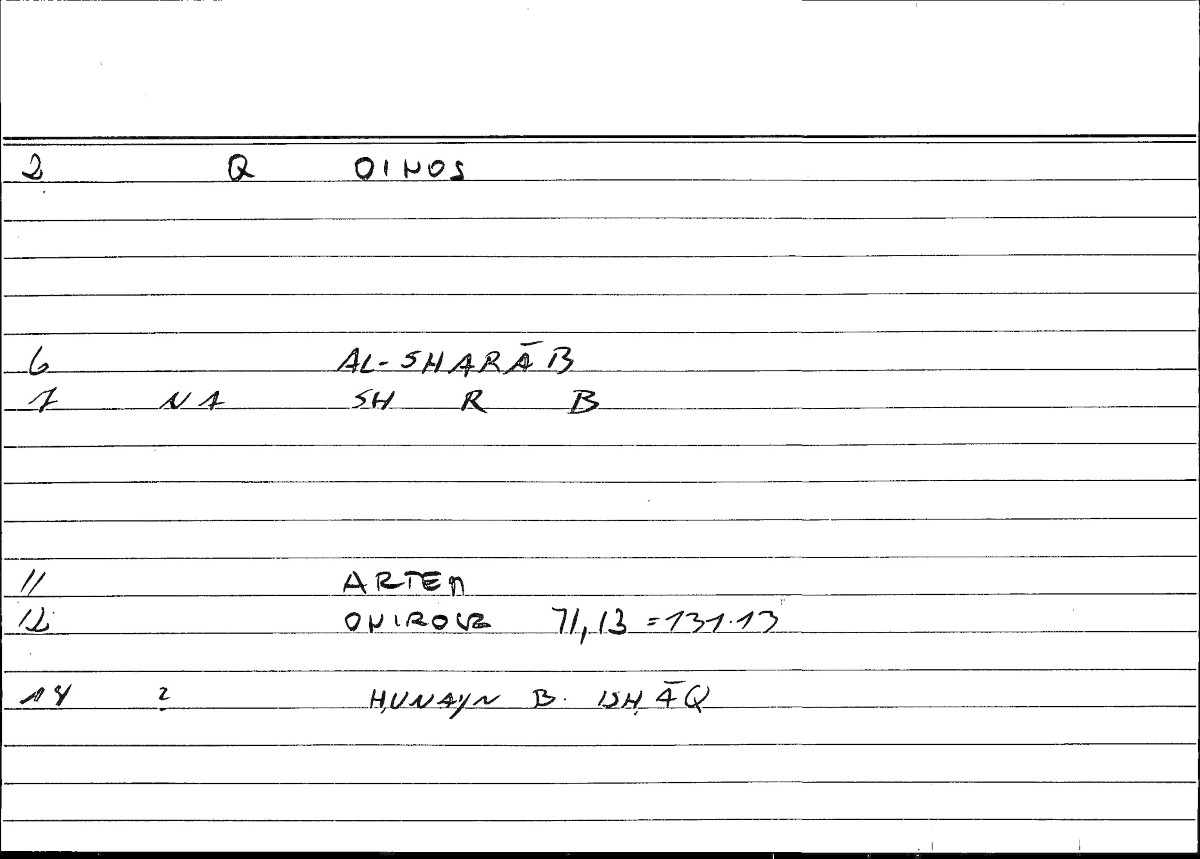 2 Q OINOS
6 AL-SHARĀB
7 NA SH R B
11 ARTEM
12 ONIROCR 71,13 = 131.13
14 ? ḤUNAYN B. ISḤĀQ